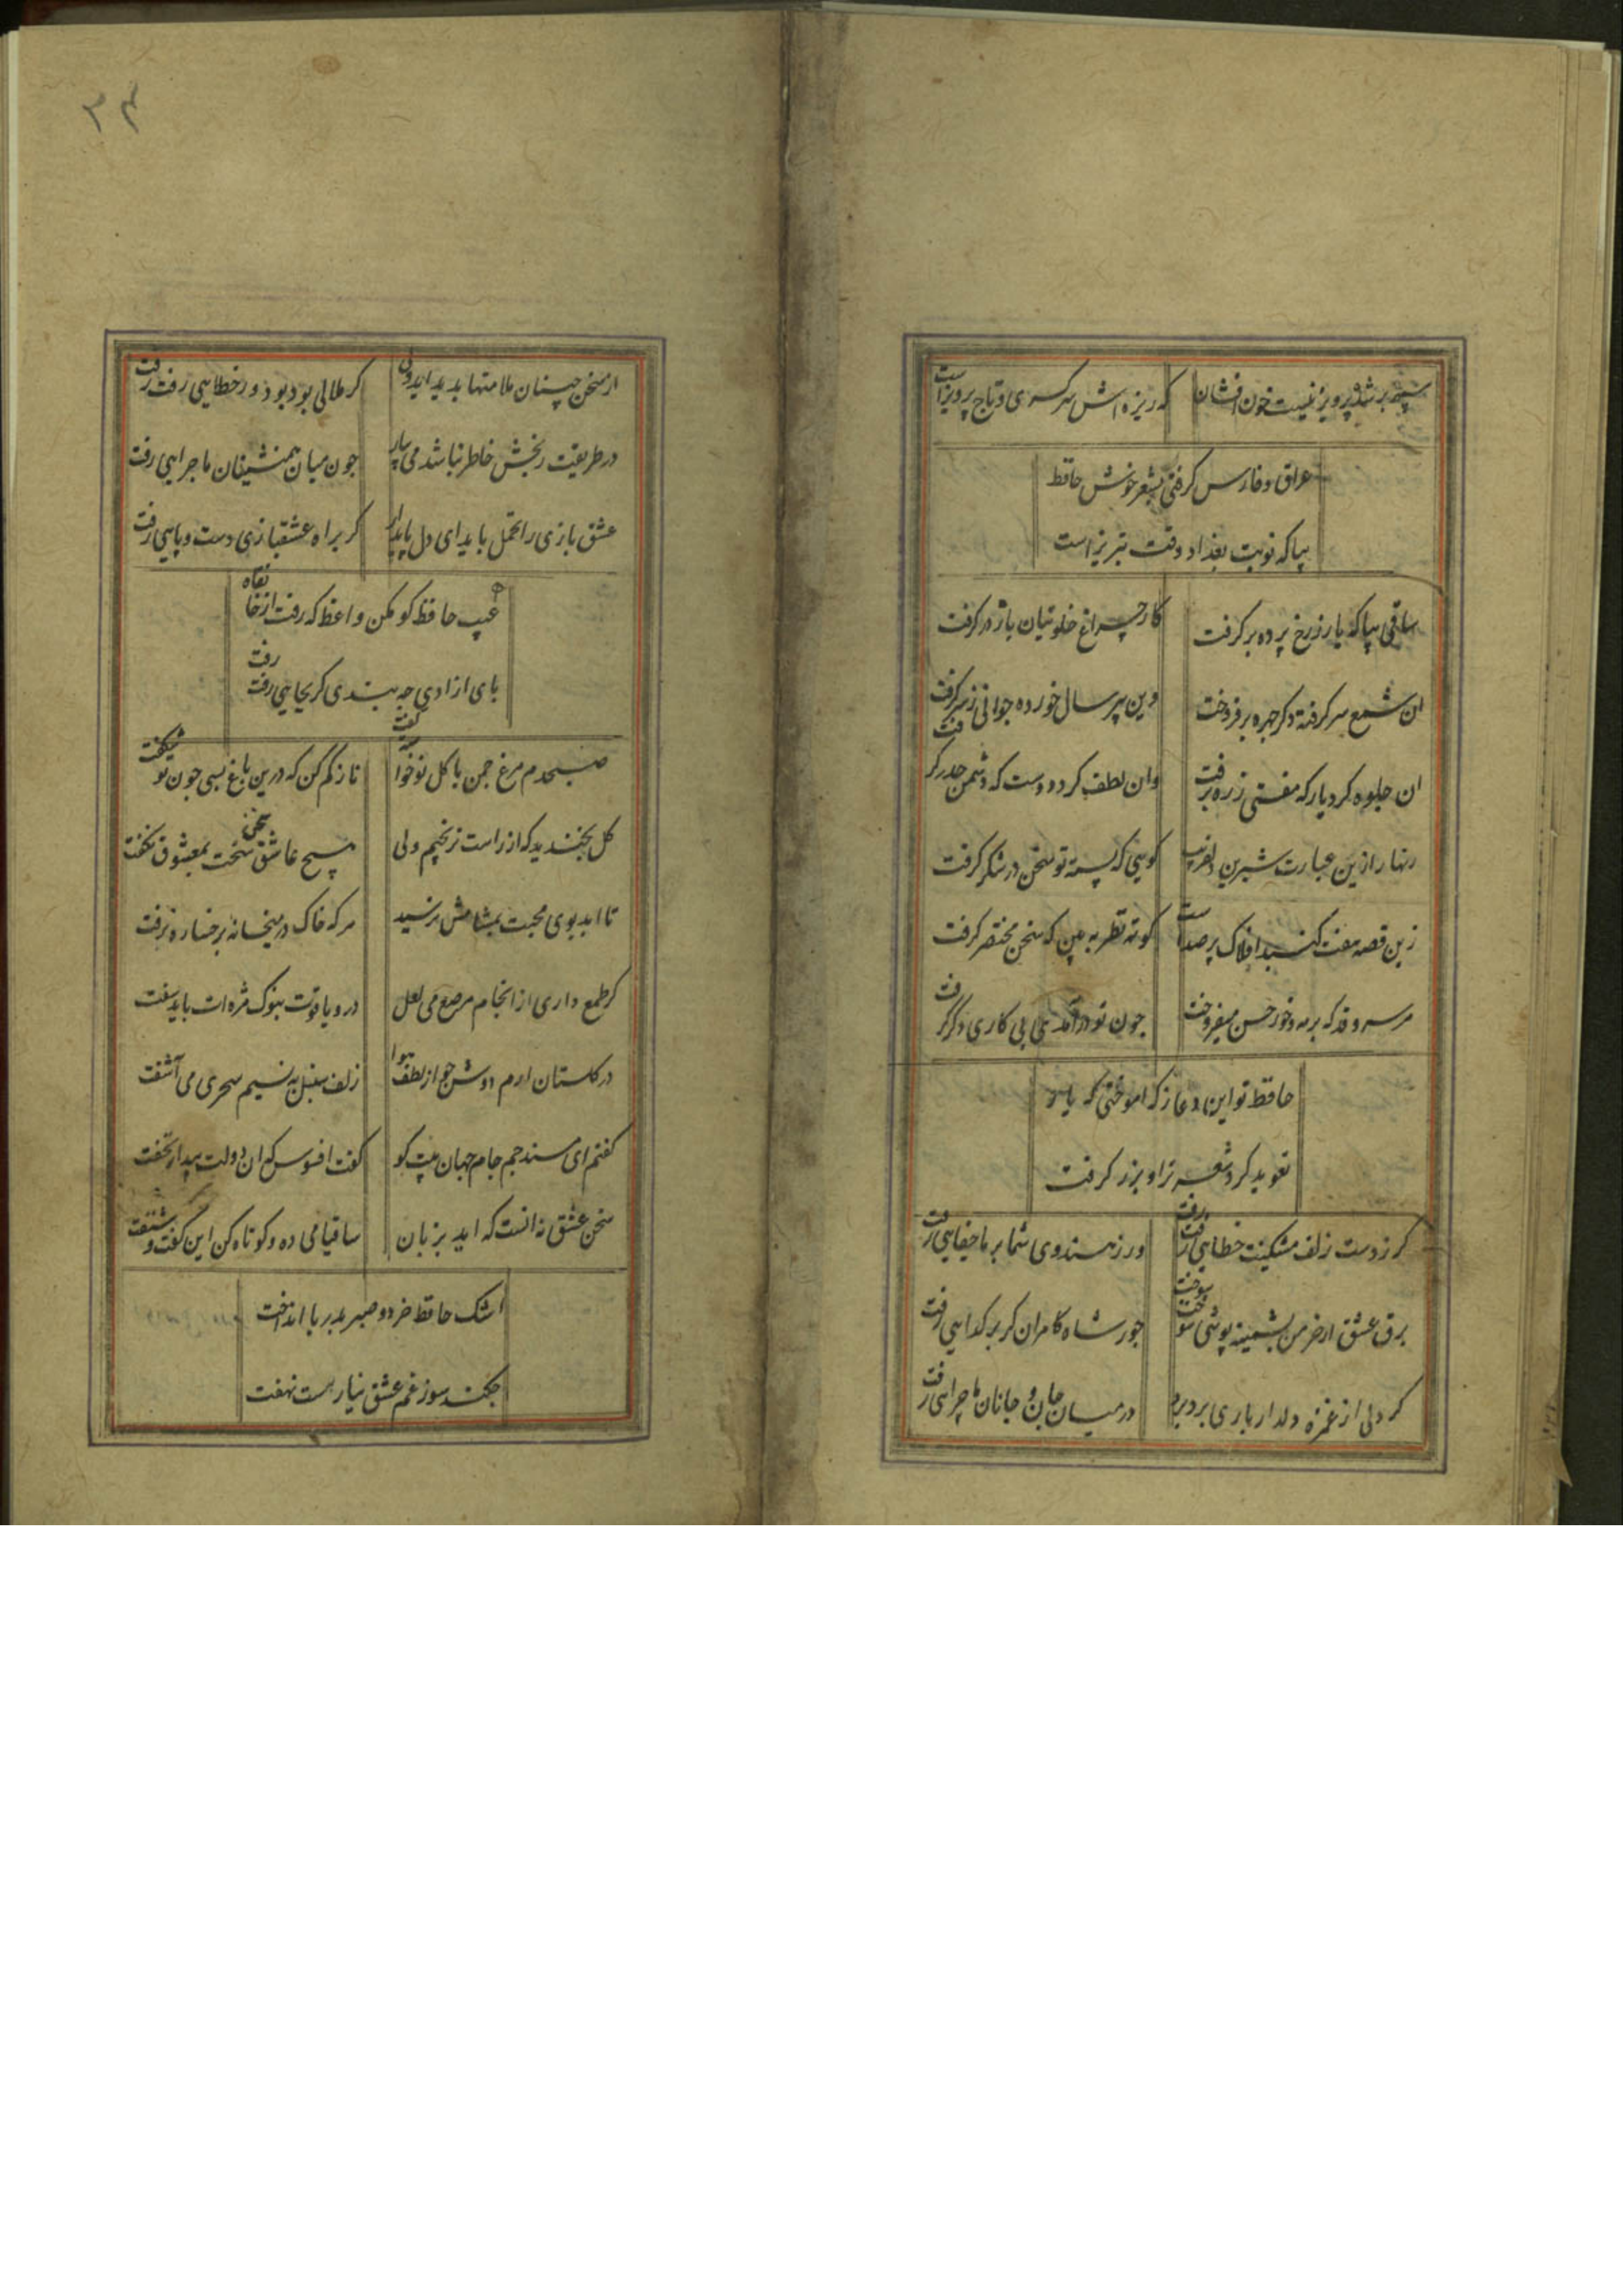 سپهر بر شده پرویزنیست خون افشان که ریزه اش سر کسری و تاج پرویز است
عراق و فارس گرفتی بشعر خوش حافظ
بیا که نوبت بغداد و وقت تبریز است
ساقی بیا که یار ز رخ پرده بر گرفت کار چراغ خلوتیان باز در گرفت
ان شمع سر گرفته دگر چهره بر فروخت وین پیر سال خورده جوانی ز سر گرفت
ان جلوه کرد یار که مفتی ز ره برفت وان لطف کرد دوست که دشمن حذر گرفت
زنهار ازین عبارت شیرین دلفریب گویی که پسته تو سخن در شکر گرفت
زین قصه هفت گنبد افلاک پر صداست کوته نظر به بین که سخن مختصر گرفت
هر سرو قد که بر مه و خور حسن میفروخت چون تو درآمدی پی کاری دگر گرفت
حافظ تو این دعا ز که اموختی که یار
تعوید کرد شعر ترا و بزر گرفت
گر ز دست زلف مشکینت خطایی رفت رفت ور ز هندوی شما بر ما جفایی رفت
برق عشق ار خرمن پشمینه پوشی سوخت سوخت جور شاه کامران گر بر گدایی رفت
گر دلی از غمزه دلدار باری برد برد در میان جان و جانان ماجرایی رفت
۳۴
از سخن چینان ملامتها پدید اید ولی گر ملالی بود بود و ور خطایی رفت رفت
در طریقت رنجش خاطر نباشد می بیار چون میان همنشینان ماجرایی رفت
عشق بازی را تحمل باید ای دل پایدار گر براه عشقبازی دست و پایی رفت
عیب حافظ گو مکن واعظ که رفت از خانقاه
پای ازادی چه بندی گر بجایی رفت رفت
صبحدم مرغ چمن با گل نوخواسته گفت ناز کم کن که درین باغ بسی چون تو شکفت
گل بخندید که از راست نرنجیم ولی هیچ عاشق سخن سخت بمعشوق نگفت
تا ابد بوی محبت بمشامش نرسید هر که خاک در میخانه برخساره نرفت
گر طمع داری از انجام مرصع می لعل در و یاقوت بنوک مژه ات باید سفت
در گلستان ارم دوش چو از لطف هوا زلف سنبل به نسیم سحری می آشفت
گفتم ای مسند جم جام جهان بینت کو گفت افسوس که ان دولت بیدار بخفت
سخن عشق نه انست که اید بزبان ساقیا می ده و کوتاه کن این گفت و شنفت
اشک حافظ خرد و صبر بدریا انداخت
چکند سوز غم عشق نیارست نهفت